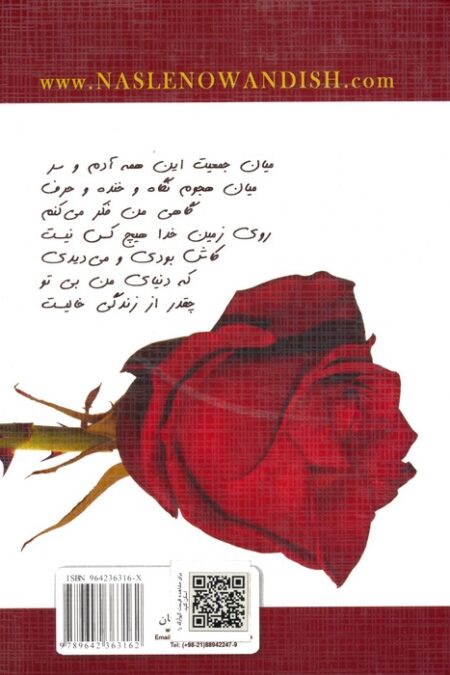 www.NASLENOWANDISH.com
میان جمعیت این همه آدم و سر
میان هجوم نگاه و خنده و حرف
گاهی من فکر می‌کنم
روی زمین خدا هیچ کس نیست
کاش بودی و می‌دیدی
که دنیای من بی تو
چقدر از زندگی خالیست
ISBN 964236316-X
9 789642 363162
برای مشاهده قیمت کیوآر را اسکن کنید
Email
Tel: (+98-21)88942247-9